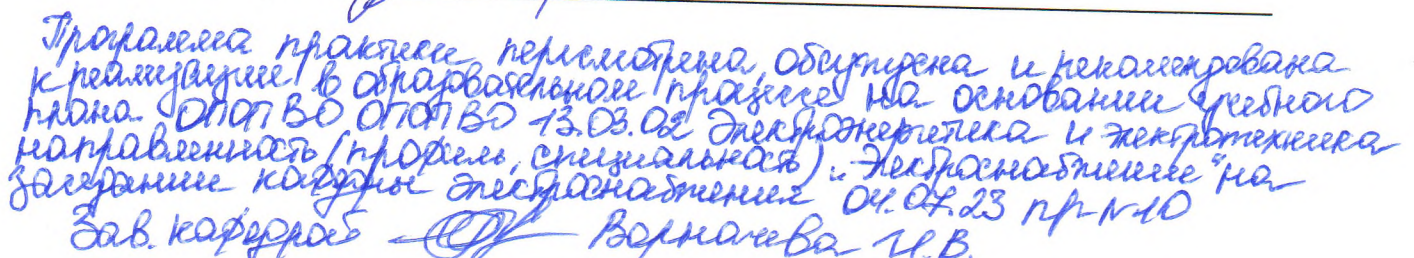 Программа практики пересмотрена, обсуждена и рекомендована
к реализации в образовательном процессе на основании учебного
плана ОПОП ВО ОПОП ВО 13.03.02 Электроэнергетика и электротехника
направленность (профиль, специальность) „Электроснабжение" на
заседании кафедры электроснабжения 04.07.23 пр-№10
Зав. кафедрой Ворначева И.В.